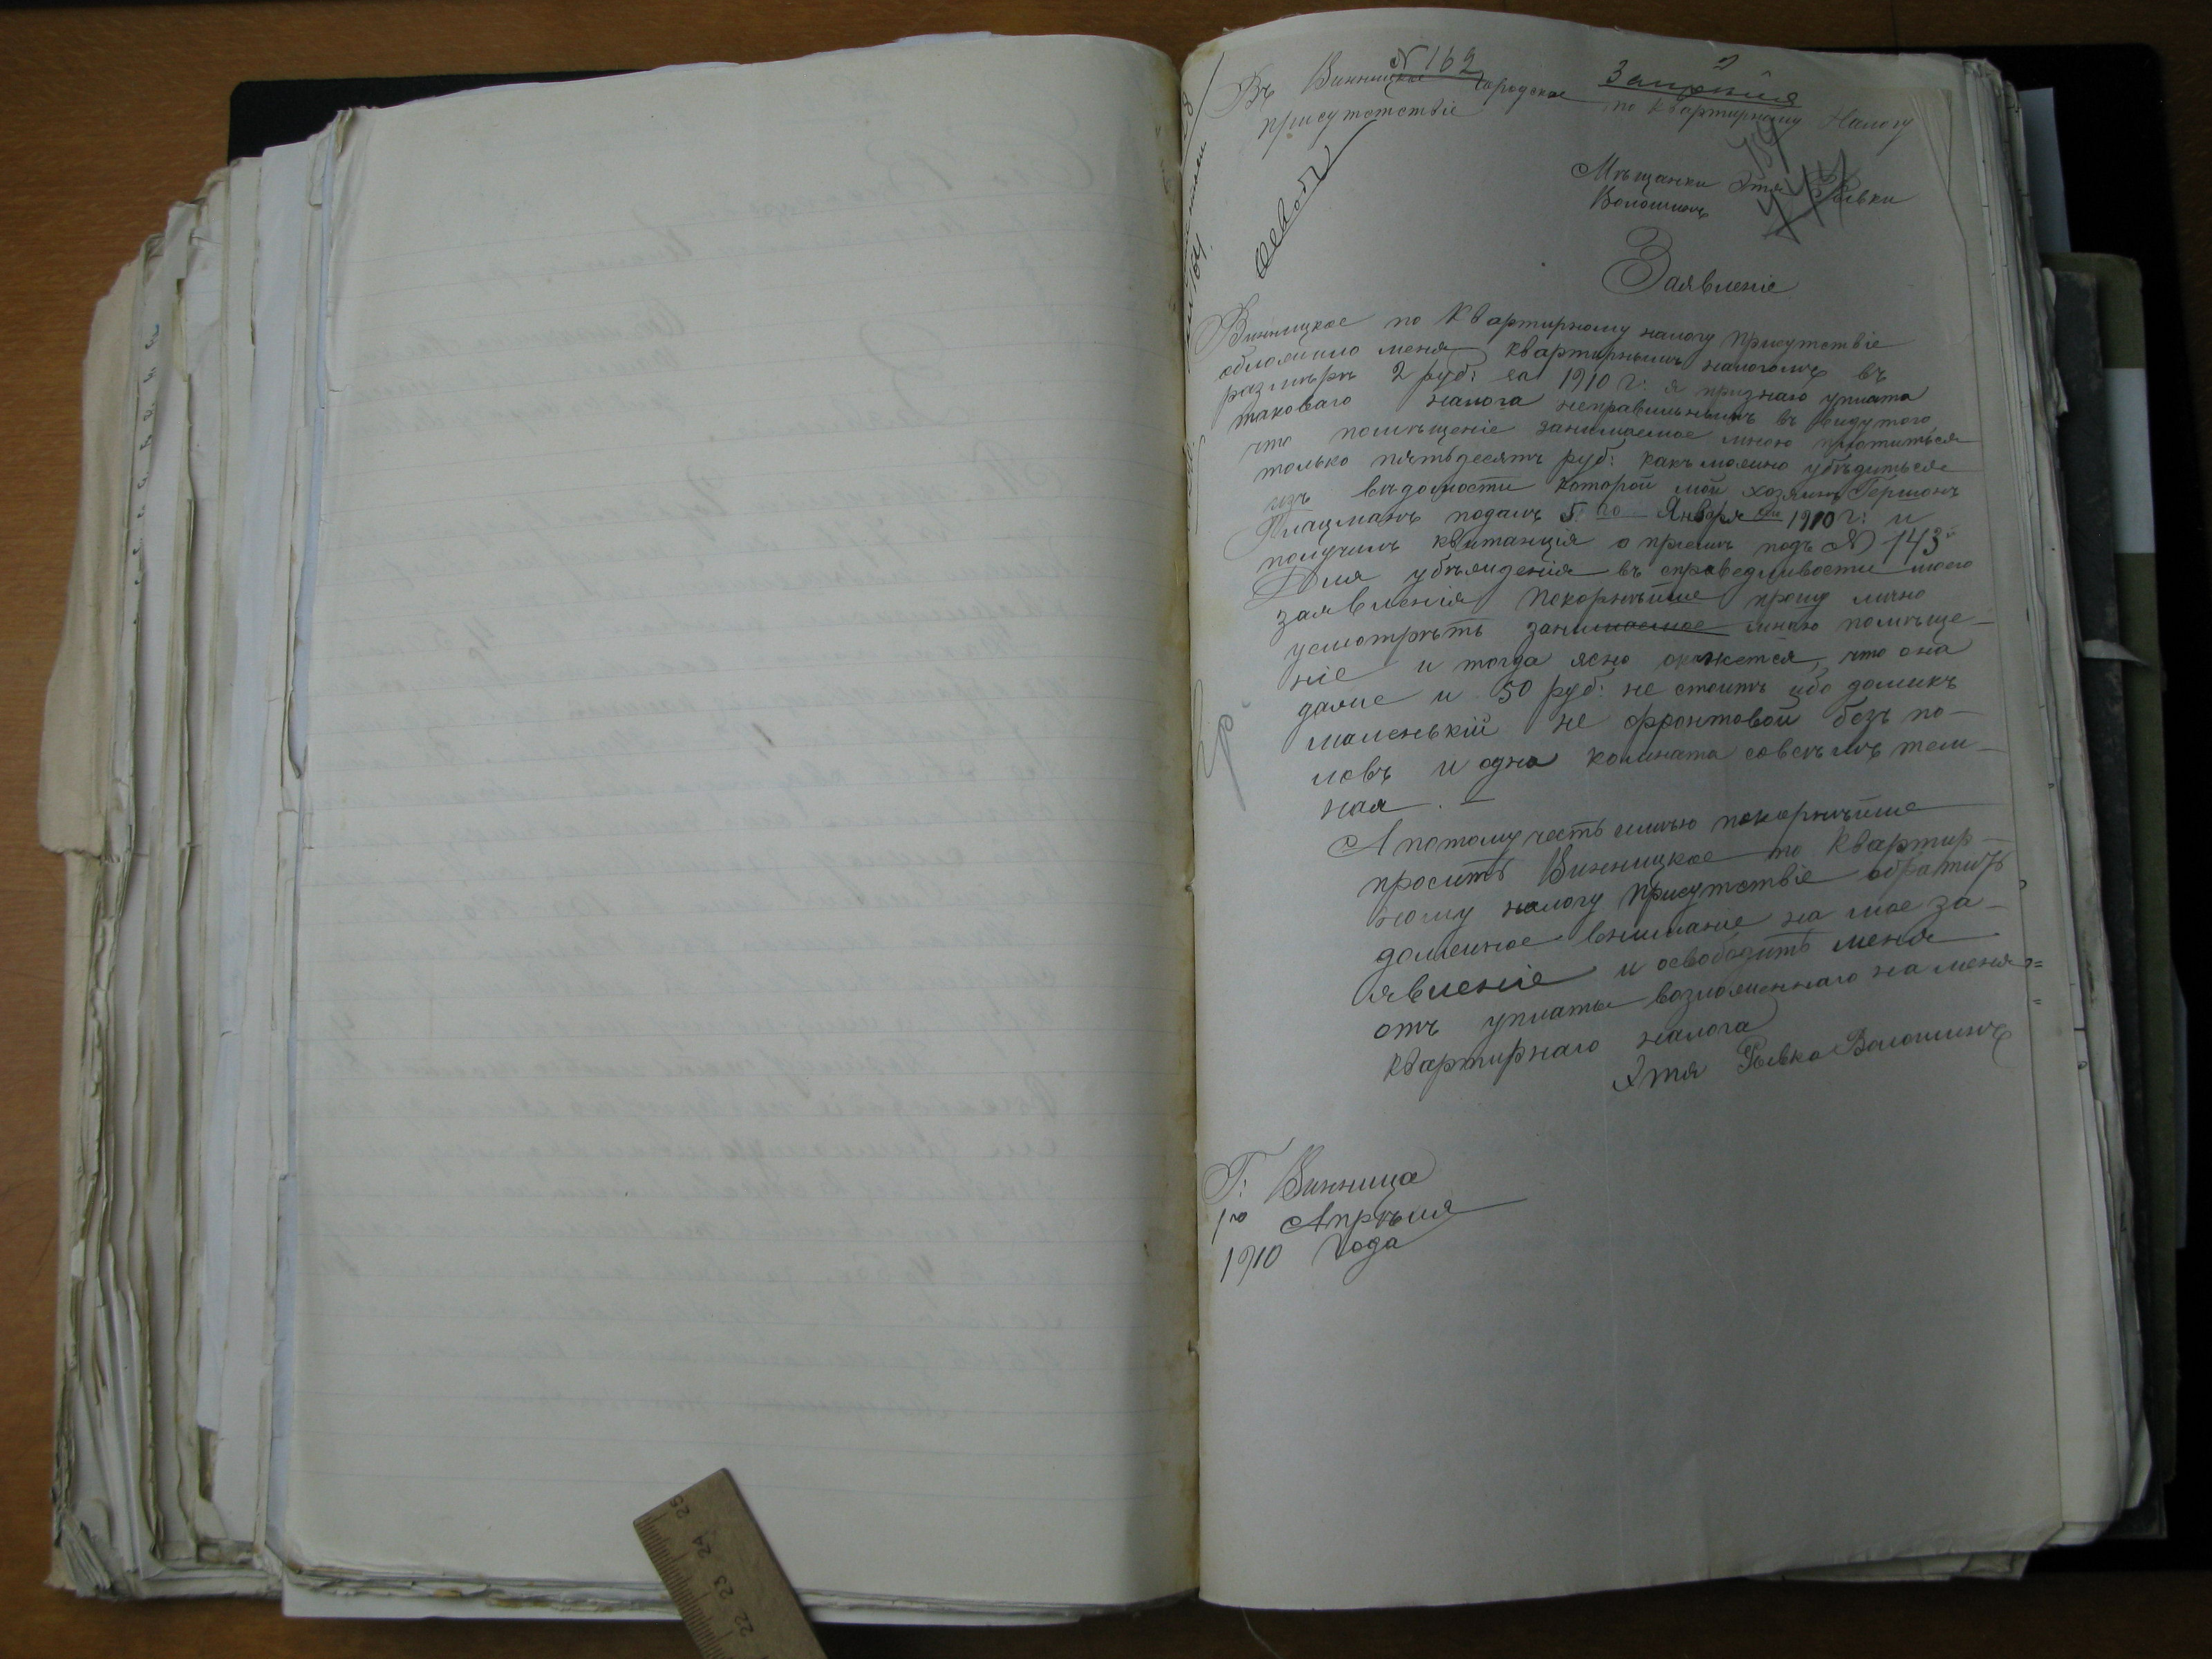 № 162
Въ Винницкое Городское
по Квартирному Налогу
присутствіе
Мѣщанки Этя Рывки
Волошинъ
Заявленіе
Винницкое по Квартирному налогу Присутствіе
обложило меня квартирнымъ налогомъ въ
размѣрѣ 2 руб: за 1910 г: я признаю уплата
таковаго налога неправильнымъ въ виду того
что помѣщеніе занимаемое мною платиться
только пятьдесятъ руб: какъ можно убѣдиться
изъ вѣдомости которой мой хозяинъ Гершонъ
подалъ 5 го Января 1910 г: и
получилъ квитанція о пріемѣ подъ № 143
Для убѣжденія въ справедливости моего
заявленія покорнѣйше прошу лично
усмотрѣть занимаемое мною помѣще-
ніе и тогда ясно окажется, что она
даже и 50 руб: не стоитъ ибо домикъ
маленькій не фронтовой безъ по-
ловъ и одна комната совсѣмъ тем-
ная. —
А потому честь имѣю покорнѣйше
просить Винницкое по Квартир-
ному налогу Присутствіе обратить
должное вниманіе на мое за-
явленіе и освободить меня
отъ уплаты возложеннаго на меня
квартирнаго налога
Этя Рывка Волошинъ
Г: Винница
1го Апрѣля
1910 Года
22 23 24 25